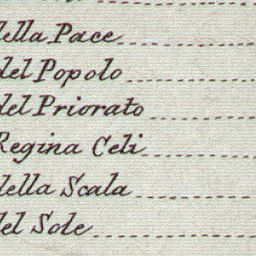 della Pace
del Popolo
del Priorato
Regina Celi
della Scala
del Sole